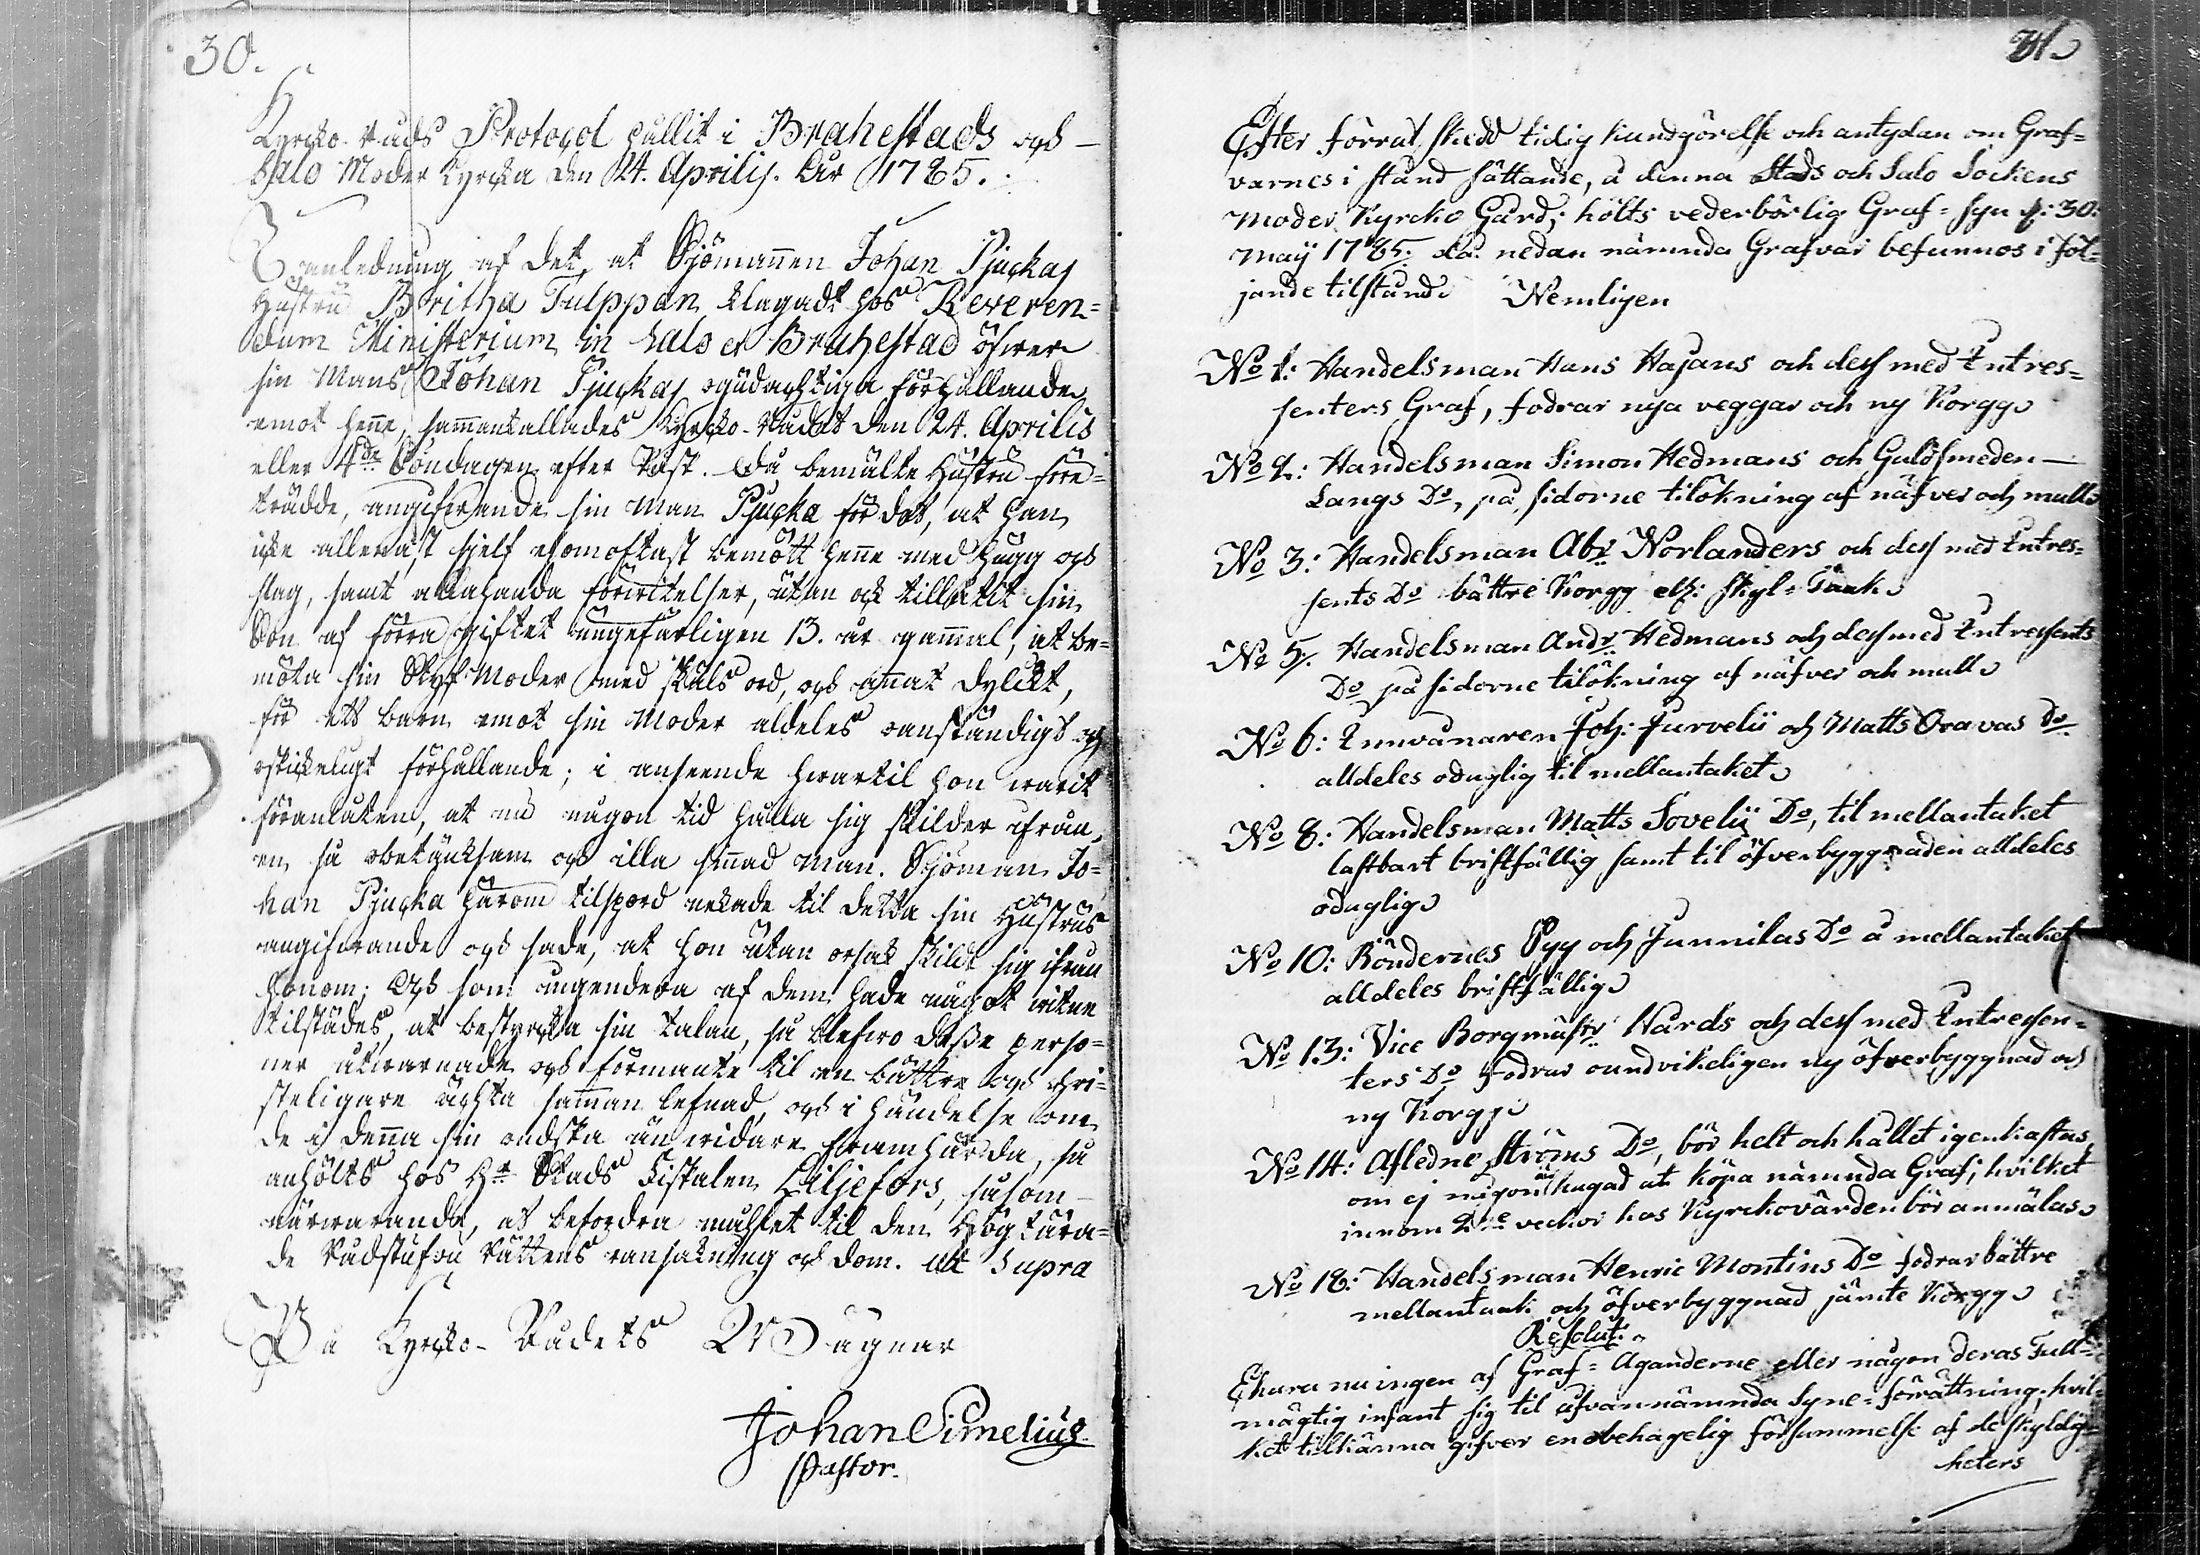 30.
Kyrcko-Råds Protocol hållit i Brahestads och
Salo Moder Kyrcka den 24. Aprilis. År 1785.
I anledning af det, at Sjömannen Johan Pjuckas
Hustru Britha Tulppan klagadt hos Reveren=
dum Ministerium in Salo et Brahestad öfwer
sin Mans Johan Pjuckas ogudachtiga förhållande
emot henne, sammankallades Kyrcko-Rådet den 24. Aprilis
eller 4de Söndagen efter Påsk. Då bemälte Hustru före=
trädde, angifwande sin Man Pjucka för det, at han
icke allenast sjelf esomoftast bemött henne med hugg och
slag, samt allahanda förwitelser, utan ock tillåtit sin
Son af förra Giftet ungefärligen 13. år gammal, at be=
möta sin Styf Moder med skäls ord, och annat dylikt,
för ett barn emot sin Moder aldeles oanständigt och
oskickeligt förhållande; i anseende hwartil hon warit
föranlåten, at nu någon tid hålla sig skilder ifrån
en så obetänksam och illa sinnad Man. Sjöman Jo=
han Pjucka härom tilspord nekade til detta sin Hustrus
angifwande och sade, at hon utan orsak skildt sig ifrån
honom; Och som ingendera af dem hade något witne
tilstädes, at bestyrcka sin talan, så blefwo desse perso=
ner utwarnade och förmante til en bättre och chri=
steligare ächta samman lefnad, och i händelse om
de i denna sin ondska än widare framhärda, så
anhölts hos Hr Stads Fiskalen Liljefors, såsom
närwarande, at befordra målet til den Höglära=
de Rådstufwu Rättens ransakning och dom. ut Supra
På Kyrcko-Rådets Wägnar
Johan Cimelius
Pastor.
31.
Efter förrut skedd tidig kundgörelse och antydan om Graf=
varnes i stånd sättande, å denna Stads och Salo Sockens
Moder Kyrcko Gård; hölts vederbörlig Graf=syn d: 30:
May 1785. då nedan nämnda Grafvar befunnos i föl=
jande tilstånd. Nemligen
No 1: Handelsman Hans Hajans och dess med Intres=
senters Graf, fodrar nya veggar och ny Korgg.
No 2: Handelsman Simon Hedmans och Gulösmeden
Langs Do, på sidorne tilökning af näfver och mull.
No 3: Handelsman Abr Norlanders och dess med Intres=
sents Do bättre Korgg elr: skyl=Taak.
No 5: Handelsman Andr Hedmans och dess med Intressents
Do på sidorne tilökning af näfver och mull.
No 6: Innvånaren Joh: Jurvelii och Matts Oravas Do
alldeles oduglig til mellantaket.
No 8: Handelsman Matts Sovelii Do, til mellantaket
lastbart bristfällig samt til öfverbyggnaden alldeles
oduglig.
No 10: Böndernes Pyy och Junnilas Do å mellantaket
alldeles bristfällig.
No 13: Vice Borgmästr Hårds och dess med Intressen=
ters Do fodrar oundvikeligen ny öfverbyggnad och
ny Korgg.
No 14: Afledne Ströms Do, bör helt och hållet igenkastas,
om ej någon är hugad at köpa nämnda Graf; hvilket
innom 2ne veckor hos Kyrckovärden bör anmälas.
No 18: Handelsman Henric Montins Do fodrar bättre
mellantaak och öfverbyggnad jämte Korgg.
Resolut:
Ehuru nu ingen af Graf=Äganderne eller någon deras Full=
mägtig infant sig til ofvannämnda Syne=förrättning; hvil=
ket tilkänna gifver en obehagelig försummelse af de skyldig=
heters